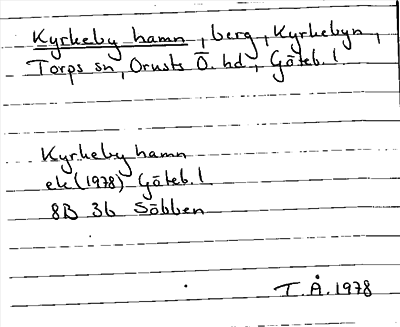 Kyrkeby hamn, berg, Kyrkebyn,
Torps sn, Orusts Ö. hd, Göteb. l.
Kyrkeby hamn
ek (1978) Göteb. l
8B 3b Söbben
T. Å. 1978